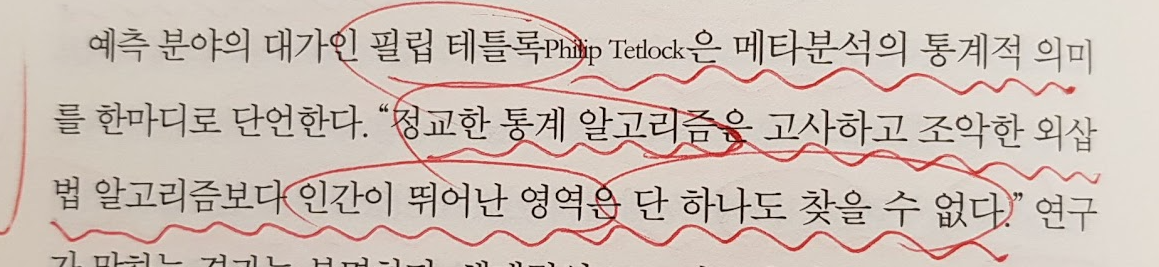 예측 분야의 대가인 필립 테틀록Philip Tetlock은 메타분석의 통계적 의미
를 한마디로 단언한다. “정교한 통계 알고리즘은 고사하고 조악한 외삽
법 알고리즘보다 인간이 뛰어난 영역은 단 하나도 찾을 수 없다.” 연구